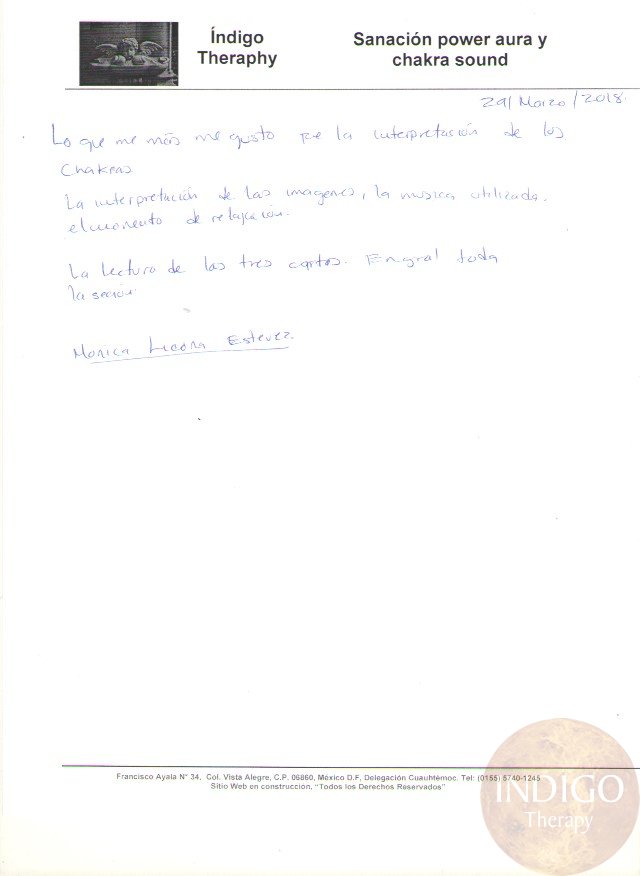 Índigo
Theraphy
Sanación power aura y
chakra sound
29/Marzo/2018.
Lo que me más me gusto fue la interpretación de los
Chakras
La interpretación de las imagenes, la musica utilizada,
el momento de relajación.
La lectura de las tres cartas. En gral toda
la sesión.
Monica Licona Estevez.
Francisco Ayala N° 34, Col. Vista Alegre, C.P. 06860, México D.F, Delegación Cuauhtémoc. Tel: (0155) 5740-1245
Sitio Web en construccion, "Todos los Derechos Reservados"
INDIGO
Therapy